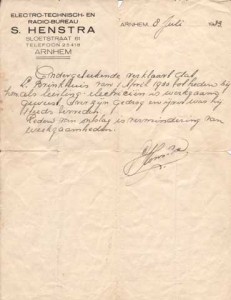 ELECTRO-TECHNISCH- EN
RADIO-BUREAU
S. HENSTRA
SLOETSTRAAT 61
TELEFOON 23418
ARNHEM
ARNHEM, 8 Juli 19
Ondergeteekende verklaart dat
1 April tot heden bij
hem als leerling-electricien is werkzaam
geweest. Over zijn gedrag en ijver was hij
steeds tevreden.
Reden van ontslag is vermindering van
werkzaamheden.
Henstra